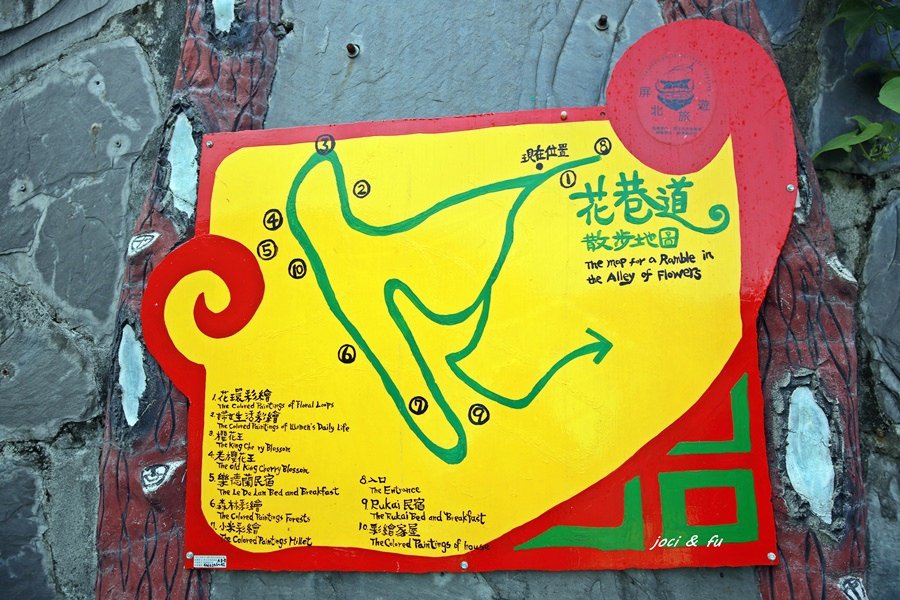 屏北旅遊
現在位置
8
1
3
2
4
5
10
6
7
9
花巷道
散步地圖
The map for a Ramble in
the Alley of Flowers
1.花環彩繪
The Colored Paintings of Floral Loops
2.婦女生活彩繪
The Colored Paintings of Women's Daily Life
3.櫻花王
The King Cherry Blossom
4.老櫻花王
The Old King Cherry Blossom
5.樂德蘭民宿
The Le Du Lan Bed and Breakfast
6.森林彩繪
The Colored Paintings Forests
7.小米彩繪
The Colored Paintings Millet
8入口
The Entrance
9.Rukai民宿
The Rukai Bed and Breakfast
10.彩繪客屋
The Colored Paintings of house
joci & fu